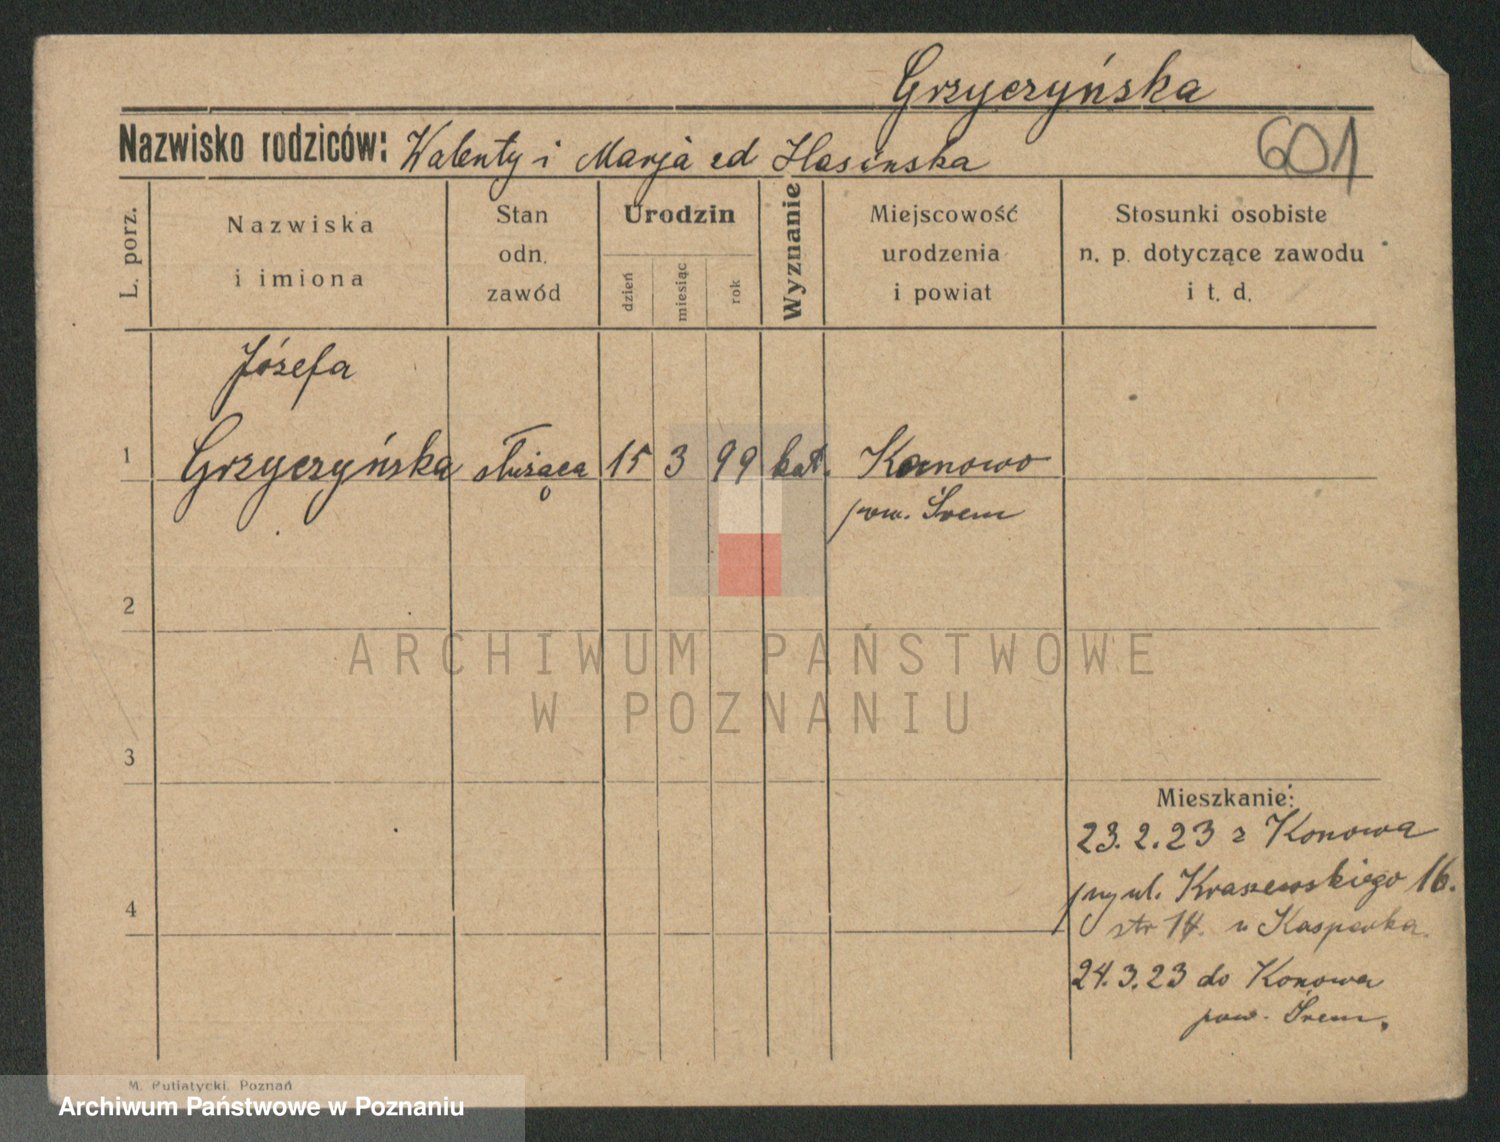 Grzyczyńska
Nazwisko rodziców: Walenty i Marja zd
601
L. porz.
Nazwiska i imiona
Stan odn. zawód
Urodzin
dzień
miesiąc
rok
Wyznanie
Miejscowość urodzenia i powiat
Stosunki osobiste n. p. dotyczące zawodu i t. d.
Józefa
1 Grzyczyńska służąca 15 3 99 kat. Konowo
pow. Śrem
2
ARCHIWUM PAŃSTWOWE
W POZNANIU
3
Mieszkanie:
23.2.23 z Konowa
przy ul. Kraszewskiego 16.
4
str 14. u Kasperka
24.3.23 do Konowa
pow. Śrem.
M. Putiatycki. Poznań
Archiwum Państwowe w Poznaniu